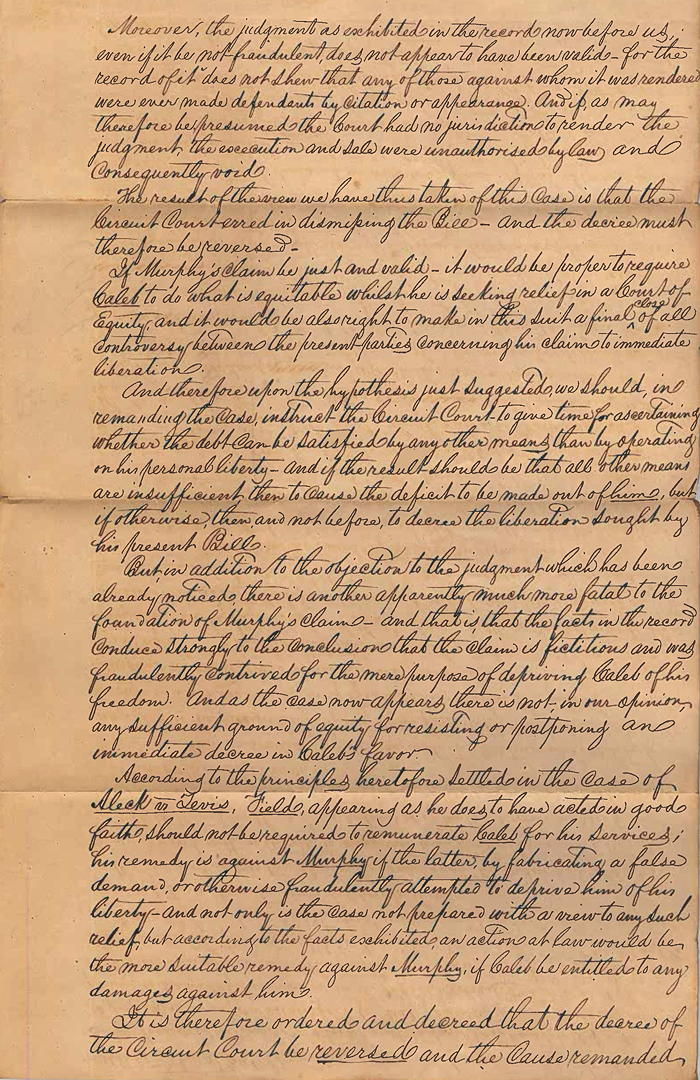 Moreover, the judgment as exhibited in the record now before us,
even if it be not fraudulent, does not appear to have been valid – for the
record of it does not shew that any of those against whom it was rendered
were ever made defendants by citation or appearance. And if, as may
therefore be presumed the Court had no jurisdiction to render the
judgment, the execution and sale were unauthorised by law and
Consequently void.
The result of the view we have thus taken of this Case is that the
Circuit Court erred in dismissing the Bill – and the decree must
therefore be reversed –
If Murphy's claim be just and valid – it would be proper to require
Caleb to do what is equitable whilst he is seeking relief in a Court of
Equity, and it would be also right to make in this suit a final close of all
controversy between the present parties concerning his claim to immediate
liberation.
And therefore upon the hypothesis just suggested, we should, in
remanding the case, instruct the Circuit Court to give time for ascertaining
whether the debt can be satisfied by any other means than by operating
on his personal liberty – and if the result should be that all other means
are insufficient then to cause the deficit to be made out of him, but
if otherwise, then, and not before, to decree the liberation sought by
his present Bill.
But, in addition to the objection to the judgment which has been
already noticed, there is another apparently much more fatal to the
foundation of Murphy's claim – and that is, that the facts in the record
Conduce strongly to the conclusion that the claim is fictitious and was
fraudulently contrived for the mere purpose of depriving Caleb of his
freedom. And as the case now appears, there is not, in our opinion,
any sufficient ground of equity for resisting or postponing an
immediate decree in Caleb's favor.
According to the principles heretofore settled in the case of
Aleck vs Levis, Field, appearing as he does, to have acted in good
faith, should not be required to remunerate Caleb for his services;
his remedy is against Murphy if the latter, by fabricating a false
demand, or otherwise fraudulently attempted to deprive him of his
liberty – and not only is the case not prepared with a view to any such
relief, but according to the facts exhibited an action at law would be
the more suitable remedy against Murphy, if Caleb be entitled to any
damages against him.
It is therefore ordered and decreed that the decree of
the Circuit Court be reversed and the Cause remanded